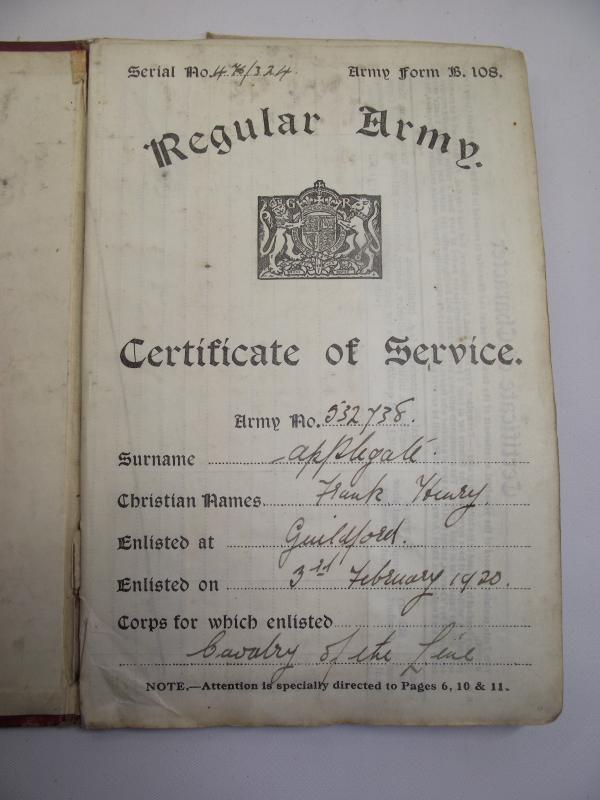 Serial No. 47/324 Army Form B. 108.
Regular Army.
G R
Certificate of Service.
Army No. 532738.
Surname Applegate.
Christian Names Frank Henry
Enlisted at Guildford.
Enlisted on 3rd February 1920.
Corps for which enlisted
Cavalry of the Line
NOTE.—Attention is specially directed to Pages 6, 10 & 11.